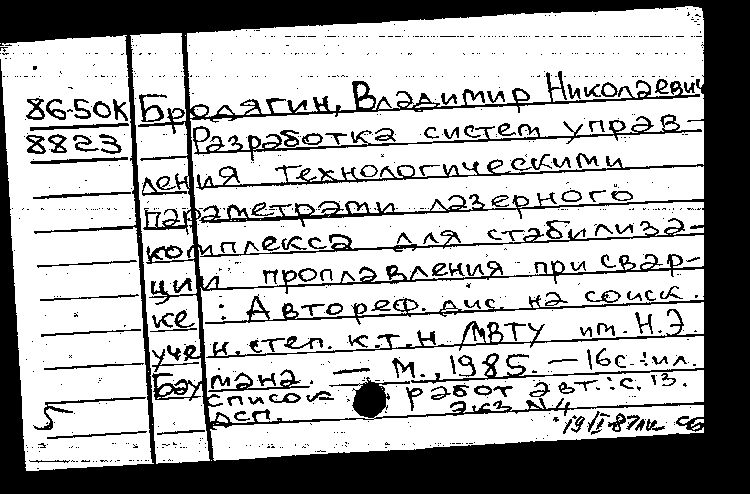 86-50К Бродягин, Владимир Николаевич
8823 Разработка систем управ-
ления технологическими
параметрами лазерного
комплекса для стабилиза-
ции проплавления при свар-
ке : Автореф. дис. на соиск.
учен. степ. к.т.н. /МВТУ им. Н.Э.
Баумана. — М., 1985. — 16с.:ил.
список работ авт.: с. 13.
ДСП. экз. N4
5
19/II-87